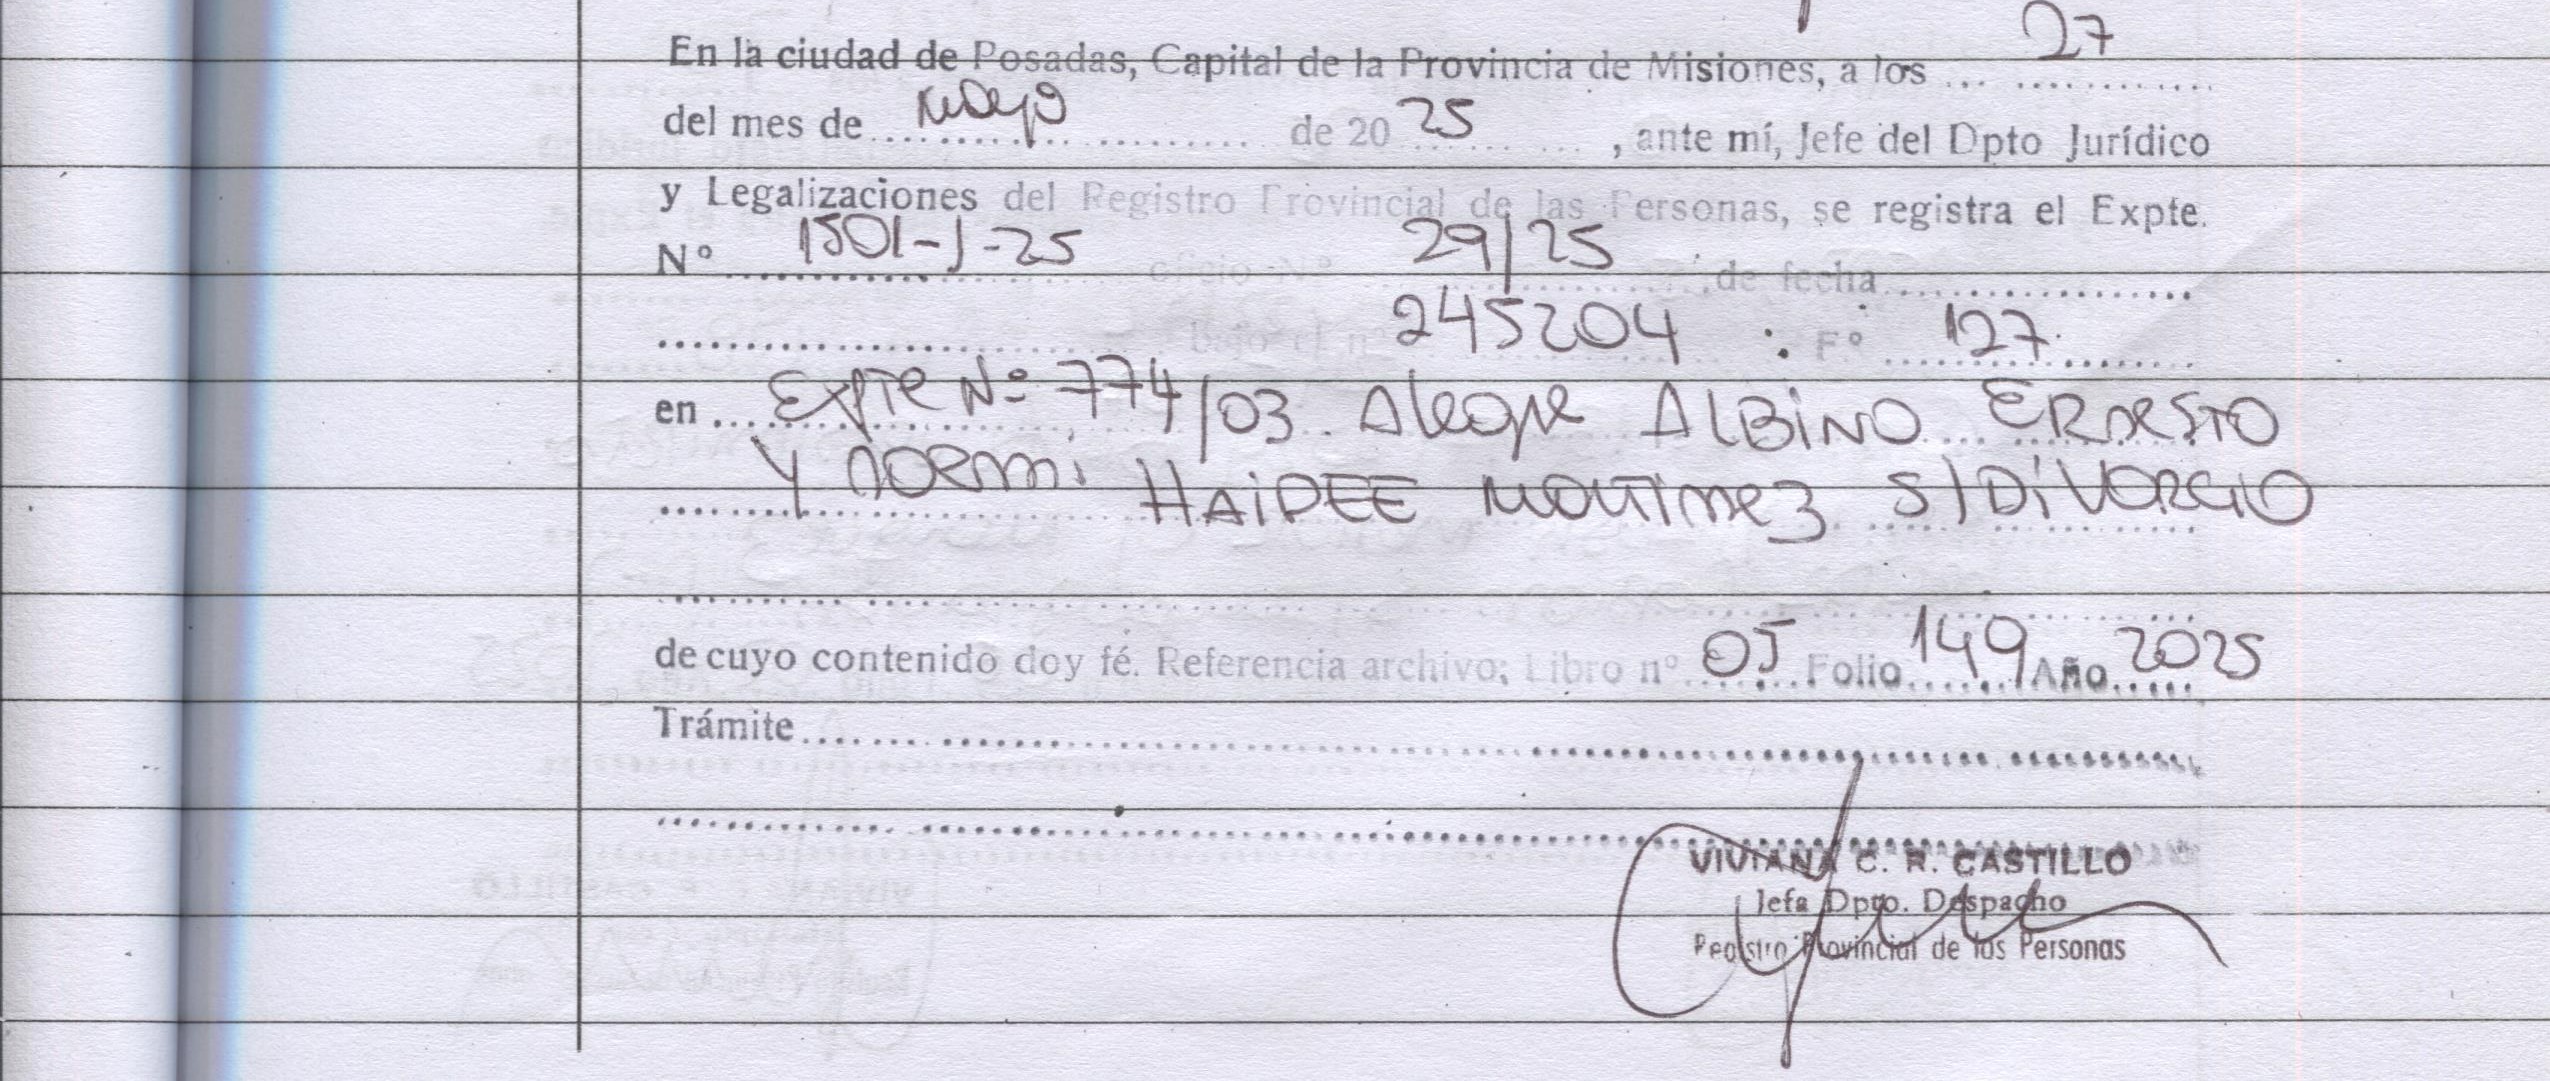 En la ciudad de Posadas, Capital de la Provincia de Misiones, a los ... 27 ............
del mes de .... mayo .................... de 20 25 ............ , ante mí, Jefe del Dpto Jurídico
y Legalizaciones del Registro Provincial de las Personas, se registra el Expte.
Nº .... 1501-J-25 .... oficio Nº .... 29/25 .... , de fecha ....................
........................ bajo el nº .... 245204 : Fº .... 127 ........
en .... Expte Nº 774/03. Alegre ALBINO ERNESTO
.... Y noemi HAIDEE Martinez S/DIVORCIO
........................................................................
de cuyo contenido doy fé. Referencia archivo; Libro nº 05 Folio 149 Año 2025
Trámite ........................................................................
........................................................................
VIVIANA C. R. CASTILLO
Jefa Dpto. Despacho
Registro Provincial de las Personas